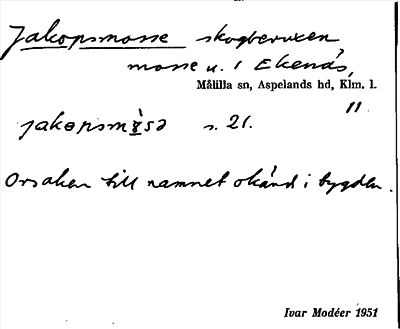 Jakopsmosse skogbevuxen
mosse u. 1 Ekenäs,
Målilla sn, Aspelands hd, Klm. l.
"
jakopsmɤ̀sə s. 21.
Orsaken till namnet okänd i bygden.
Ivar Modéer 1951